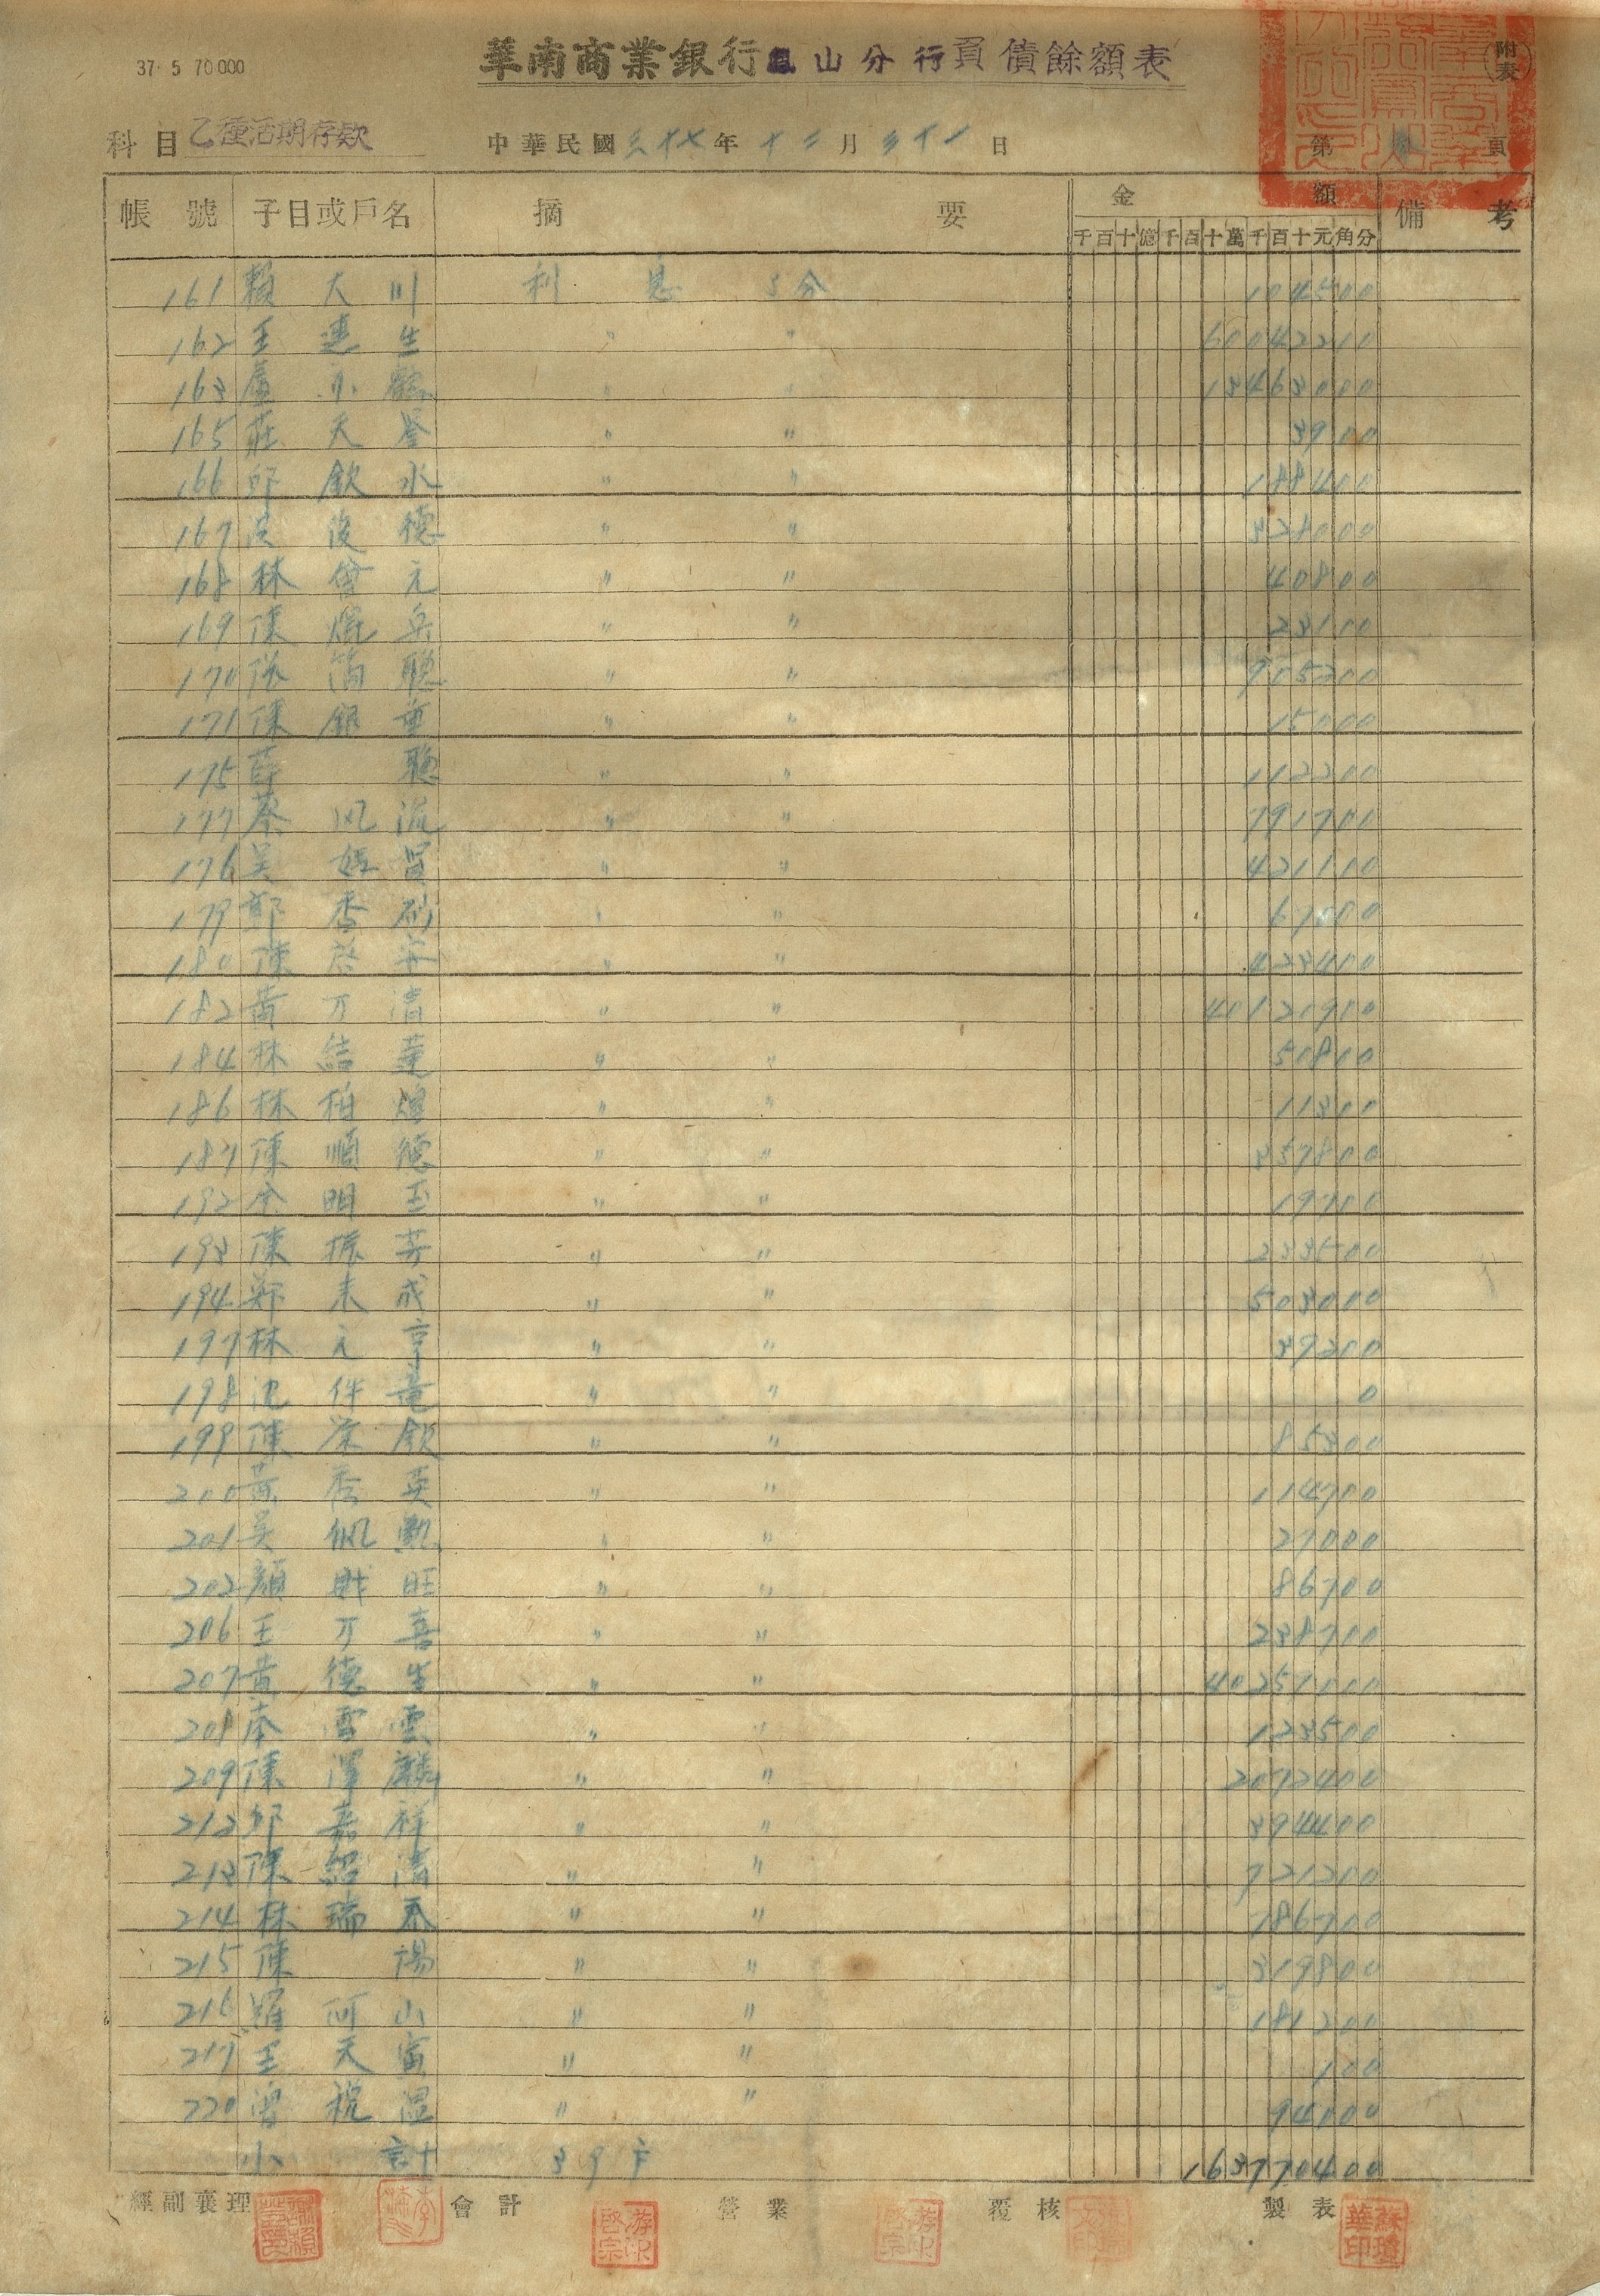 37 5 70000
華南商業銀行鳳山分行負債餘額表
附表
科目 乙種活期存款 中華民國 三十七 年 十二 月 三十一 日 第 頁
帳號 子目或戶名 摘要 金額 備考
千百十億千百十萬千百十元角分
161 賴大川 利息 5分 104500
162 王連生 〃 〃 60042200
163 盧 〃 〃 13463000
165 莊天 〃 〃 3900
166 邱欽水 〃 〃 188400
167 俊德 〃 〃 328000
168 林曾元 〃 〃 40800
169 陳焜兵 〃 〃 23100
170 聰 〃 〃 905200
171 陳銀 〃 〃 15000
175 薛聰 〃 〃 112200
177 蔡風流 〃 〃 791700
176 吳 〃 〃 421100
179 鄭香 〃 〃 67500
180 陳啓 〃 〃 423400
182 黃万清 〃 〃 40120900
184 林結蓮 〃 〃 50800
186 林柏煌 〃 〃 11300
187 陳順德 〃 〃 357800
192 明玉 〃 〃 19700
193 陳振芳 〃 〃 233500
194 鄭未成 〃 〃 503000
197 林元亨 〃 〃 39200
198 沈 〃 〃 0
199 陳榮欽 〃 〃 85300
200 黃秀英 〃 〃 114700
201 吳佩勲 〃 〃 27000
202 顏財旺 〃 〃 86700
206 王万喜 〃 〃 238700
207 黃德生 〃 〃 40251000
208 李雪雲 〃 〃 123500
209 陳澤麟 〃 〃 2072400
212 邱嘉祥 〃 〃 394400
213 陳紹清 〃 〃 721200
214 林瑞泰 〃 〃 186700
215 陳湯 〃 〃 319800
216 羅阿山 〃 〃 181200
217 王天寅 〃 〃 100
220 曾稅湿 〃 〃 94000
小計 39戶 163770400
經副襄理 會計 營業 覆核 製表
游啓宗 游啓宗 蘇瓊華印